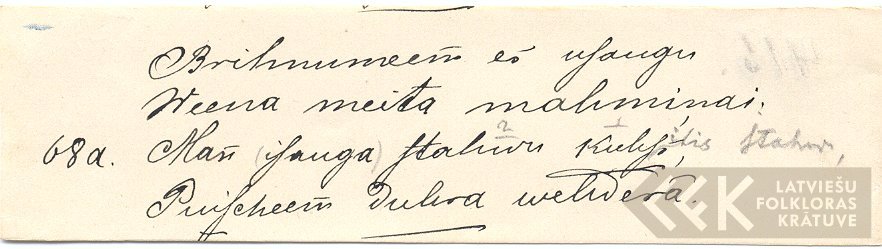 Brihnumeem es usaugu
Weena meita mahmiņai;
68a. Man (isauga) stahwu kuhs, itis stahw,
Puischeem Duhra wehderā.
LATVIEŠU
FOLKLORAS
KRĀTUVE